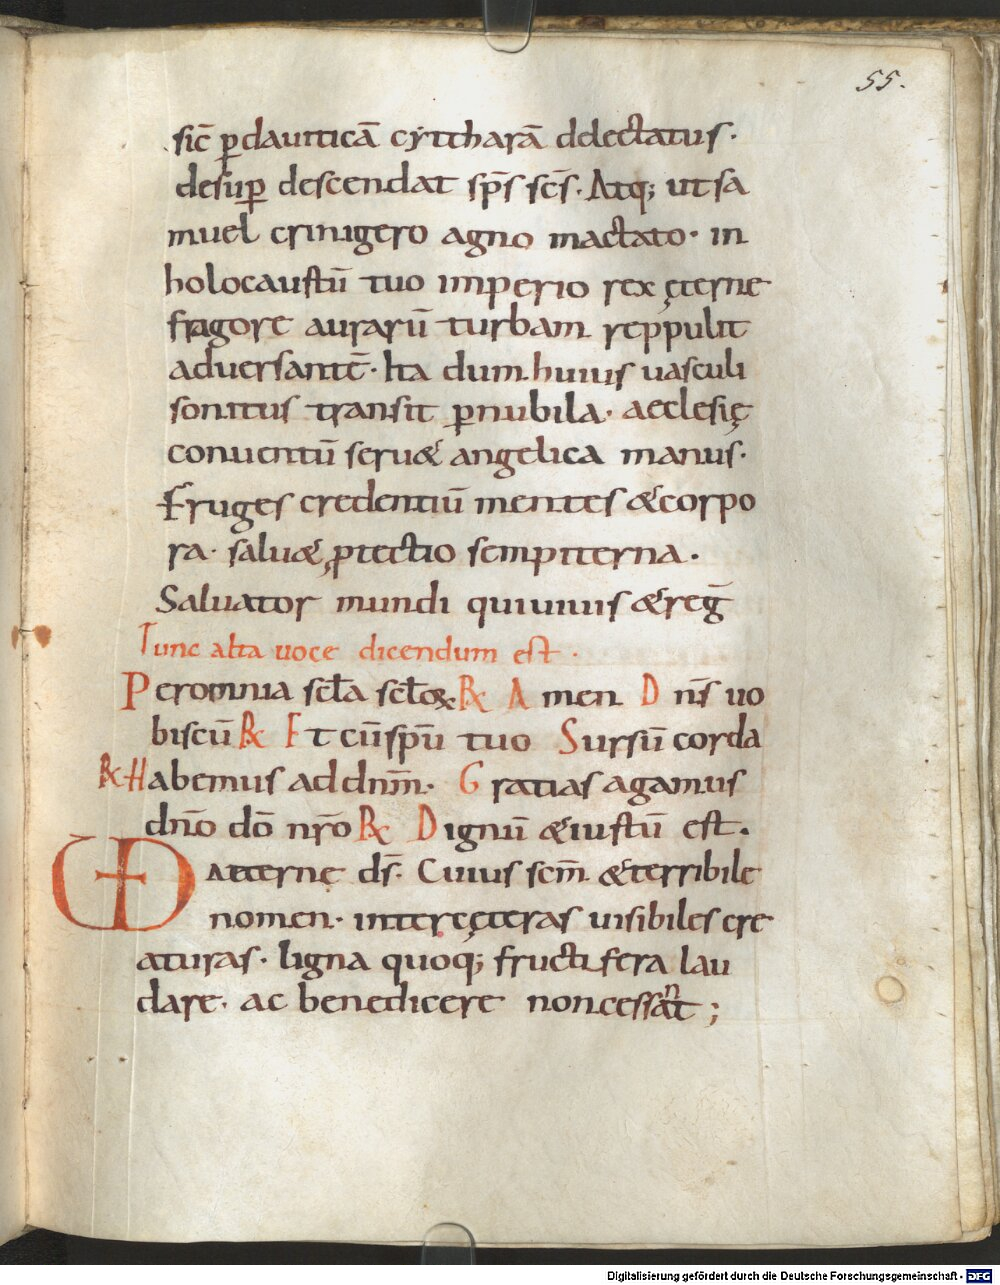 55.
sic̄ ꝑ dauiticā cẏttharā delectatus·
desuꝑ descendat sp̄s sc̄s· Atq; ut sa
muel crinigero agno mactato· in
holocaustū tuo imperio rex ęterne
fragore aurarū turbam reppulit
aduersantē· Ita dum huius uasculi
sonitus transit ꝑ nubila· aeclesię
conuentū seru& angelica manus·
Fruges credentiū mentes & corpo
ra· salu& ꝓtectio sempiterna·
Saluator mundi qui uiuis & reg̅
Tunc alta uoce dicendum est·
Per omnia sc̅la sc̅loꝝ ℞ Amen Dn̅s uo
biscū ℞ Et cū sp̅u tuo Sursū corda
℞ Habemus ad dn̅m· Gratias agamus
dn̅o dō nr̅o ℞ Dignū & iustū est.
VD Aeternę ds̅· Cuius sc̅m & terribile
nomen· inter ceteras uisibiles cre
aturas· ligna quoq; fructifera lau
dare· ac benedicere non cessant ;
Digitalisierung gefördert durch die Deutsche Forschungsgemeinschaft - DFG